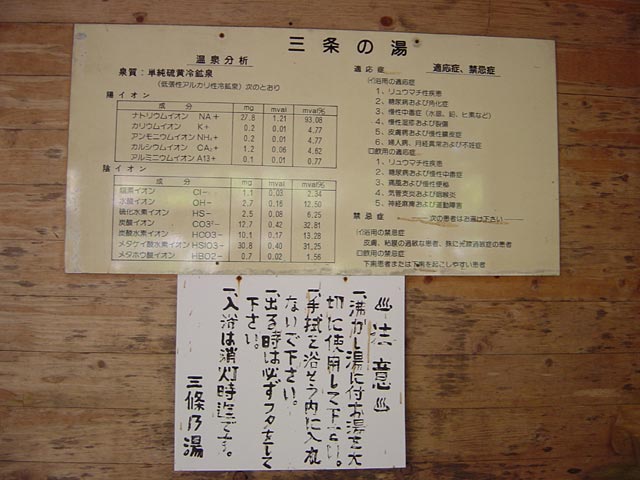 三条の湯
温泉分析
泉質：単純硫黄冷鉱泉
(低張性アルカリ性冷鉱泉) 次のとおり
陽イオン
成分 mg mval mval%
ナトリウムイオン NA+ 27.8 1.21 93.08
カリウムイオン K+ 0.2 0.01 4.77
アンモニウムイオン NH4+ 0.2 0.01 4.77
カルシウムイオン CA2+ 1.2 0.06 4.62
アルミニウムイオン A13+ 0.1 0.01 0.77
陰イオン
成分 mg mval mval%
イオン Cl- 1.1 0.03 2.34
水酸イオン OH- 2.7 0.16 12.50
硫化水素イオン HS- 2.5 0.08 6.25
炭酸イオン CO3²- 12.7 0.42 32.81
炭酸水素イオン HCO3- 10.1 0.17 13.28
メタケイ酸水素イオン HSIO3- 30.8 0.40 31.25
メタホウ酸イオン HBO2- 0.7 0.02 1.56
適応症、禁忌症
適応症
(イ)浴用の適応症
1、リュウマチ性疾患
2、糖尿病および角化症
3、慢性中毒症 (水銀、鉛、ヒ素など)
4、慢性湿疹および
5、皮膚病および慢性膣炎症
6、婦人病、月経異常および不妊症
ロ飲用の適応症
1、リュウマチ性疾患
2、糖尿病および慢性中毒症
3、痛風および慢性便秘
4、気管支炎および咽喉炎
5、神経麻痺および運動障害
禁忌症 次の患者はお湯は下さい
(イ)浴用の禁忌症
皮膚、粘膜の過敏な患者、殊に光線過敏症の患者
ロ飲用の禁忌症
下痢患者または下痢を起こしやすい患者
♨注意♨
一、沸かし湯に付お湯を大
切に使用して下さい。
一、手拭を浴そう内に入れ
ないで下さい。
一、出る時は必ずフタをして
下さい。
一、入浴は消灯時迄です。
三條乃湯